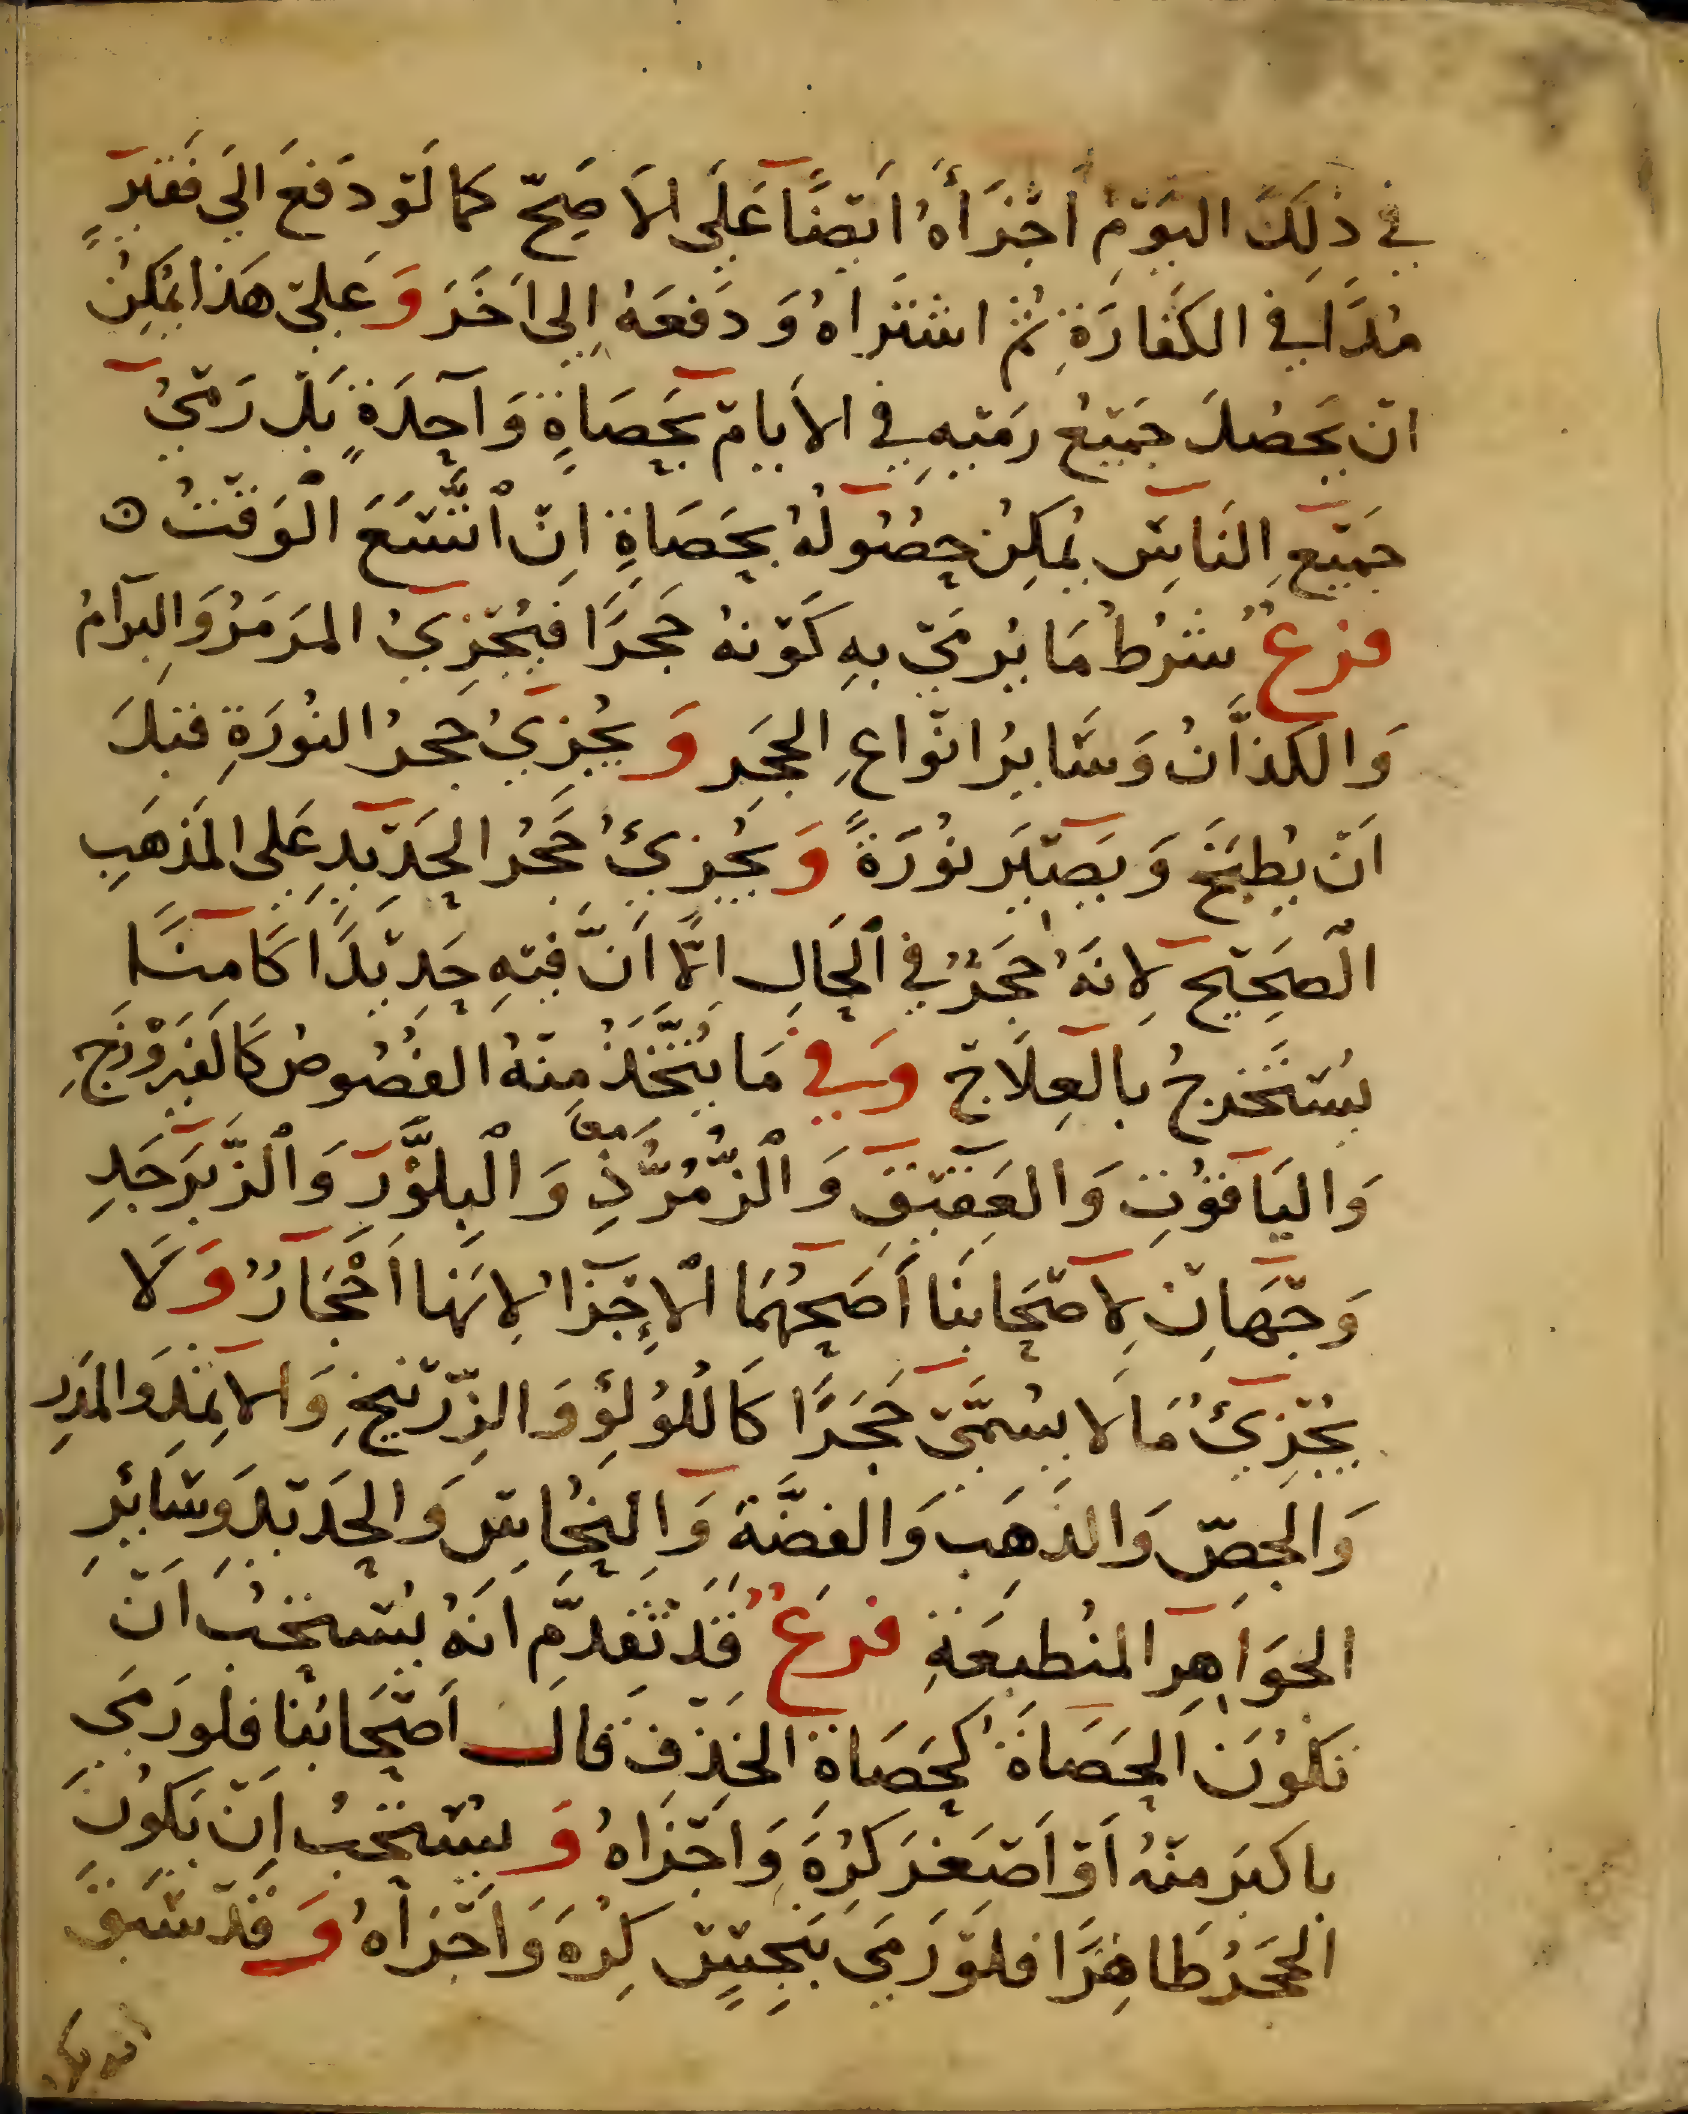 في ذَلِكَ اليَوْمِ أَجْزَأَهُ اَيْضًا عَلَى الاَصَحّ كما لَوْ دَفعَ الَى فَقيْرٍ
مُدًّا في الكَفارَةِ ثُمَّ اشتَرَاهُ وَ دَفعَهُ إِلى اَخَرَ وَعَلىْ هَذا يُمْكِنُ
انْ يَحصُلَ جَميْعُ رَمْيِهِ في الاَيامْ بِحَصَاةٍ وَاحِدَةٍ بَلْ رَمْيُ
جَميْعِ النَاسِ يُمكِنُ حُصُولهُ بحَصَاةِ اِنْ اْتَّسَعَ الْوَقْتُ ه
فرعٌ شرْطُ مَا يُرمَيْ بهِ كَوْنهُ حَجرًا فيُجْزيُ المَرمَرُ وَالبِرَامُ
وَالكَذَّانُ وَسَايرُ انْواعِ الحجَر وَ يُجْزيُ حَجرُ النُورَةِ قبْلَ
اَنْ يُطبَخَ وَ يَصيْيَر نوُرَةً وَ يُجزئُ حَجَرُ الحَدِيْدِ عَلى المَذهَبِ
الْصَحِيْح لاِنَهُ حَجَرٌ في الْحَالِ اِلَّا اَنَّ فيْهِ حَدِيْدًا كَامنًا
يُسْتَخرجُ بِالْعِلَاجْ وَفي مَا يُتَّخَذُ مِنْهُ الفُصُوصُ كَالفَيرَوْزَجِ
وَاليَاقوُتِ وَالعَقِيْقِ وَ الْزُّمُرُّذِ معًا وَ الْبِلَّوْرِ وَ الْزَّبَرْجَدِ
وَجْهَانِ لاِصْحَابنَا أَصَحهُمَا الْإِجْزَاُ لاِنَهَا اَحْجَارٌ وَ لَا
يُجْزئُ مَا لَا يُسَمَّىْ حَجَرًا كَاللُؤلؤِ وَ الزِّرْنيخِ وَ الاِثمِدِ وَالمَدَرِ
وَالجصّ وَالذهَبِ وَالفضَّةِ وَالنحُاسِ وَ الحَدِيْدِ وَسَائرِ
الجَوَاهِرِ المنُطبعَةِ فرعٌ قَدْ تَقدَّمَ انَهُ يُسْتحَبُ اَنْ
تكوُنَ الحَصَاةَ كحَصَاةِ الخَذْفِ قَالَ اَصْحَابُنا فلو رَمَي
باكبَر منْهُ اَوْ اَصْغَرَ كَرُهَ وَاَجْزَاهُ وَ يُسْتحَبُ اَنْ يَكوُنَ
الْحَجَرُ طَاهِرًا فلوْ رَمَي بَنجِسٍ كِرُهَ وَ اَجْزَاهُ وَ قَدْ سَبَقَ
انه يكره